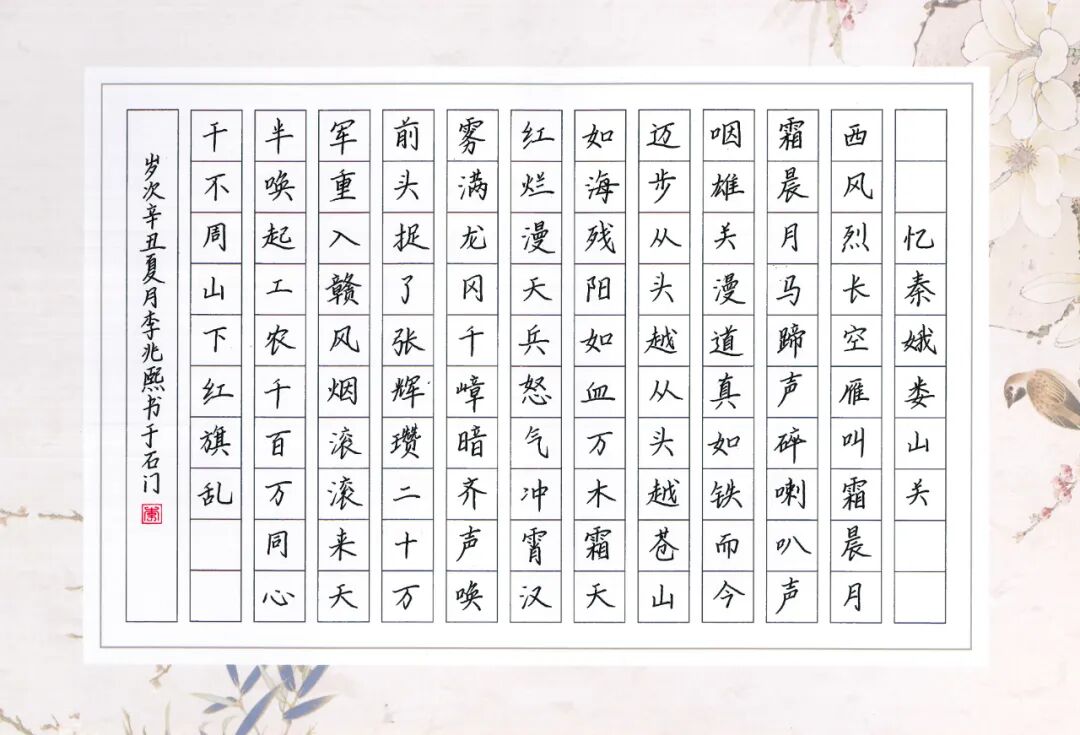 忆秦娥娄山关
西风烈长空雁叫霜晨月
霜晨月马蹄声碎喇叭声
咽雄关漫道真如铁而今
迈步从头越从头越苍山
如海残阳如血万木霜天
红烂漫天兵怒气冲霄汉
雾满龙冈千嶂暗齐声唤
前头捉了张辉瓒二十万
军重入赣风烟滚滚来天
半唤起工农千百万同心
干不周山下红旗乱
岁次辛丑夏月李兆熙书于石门